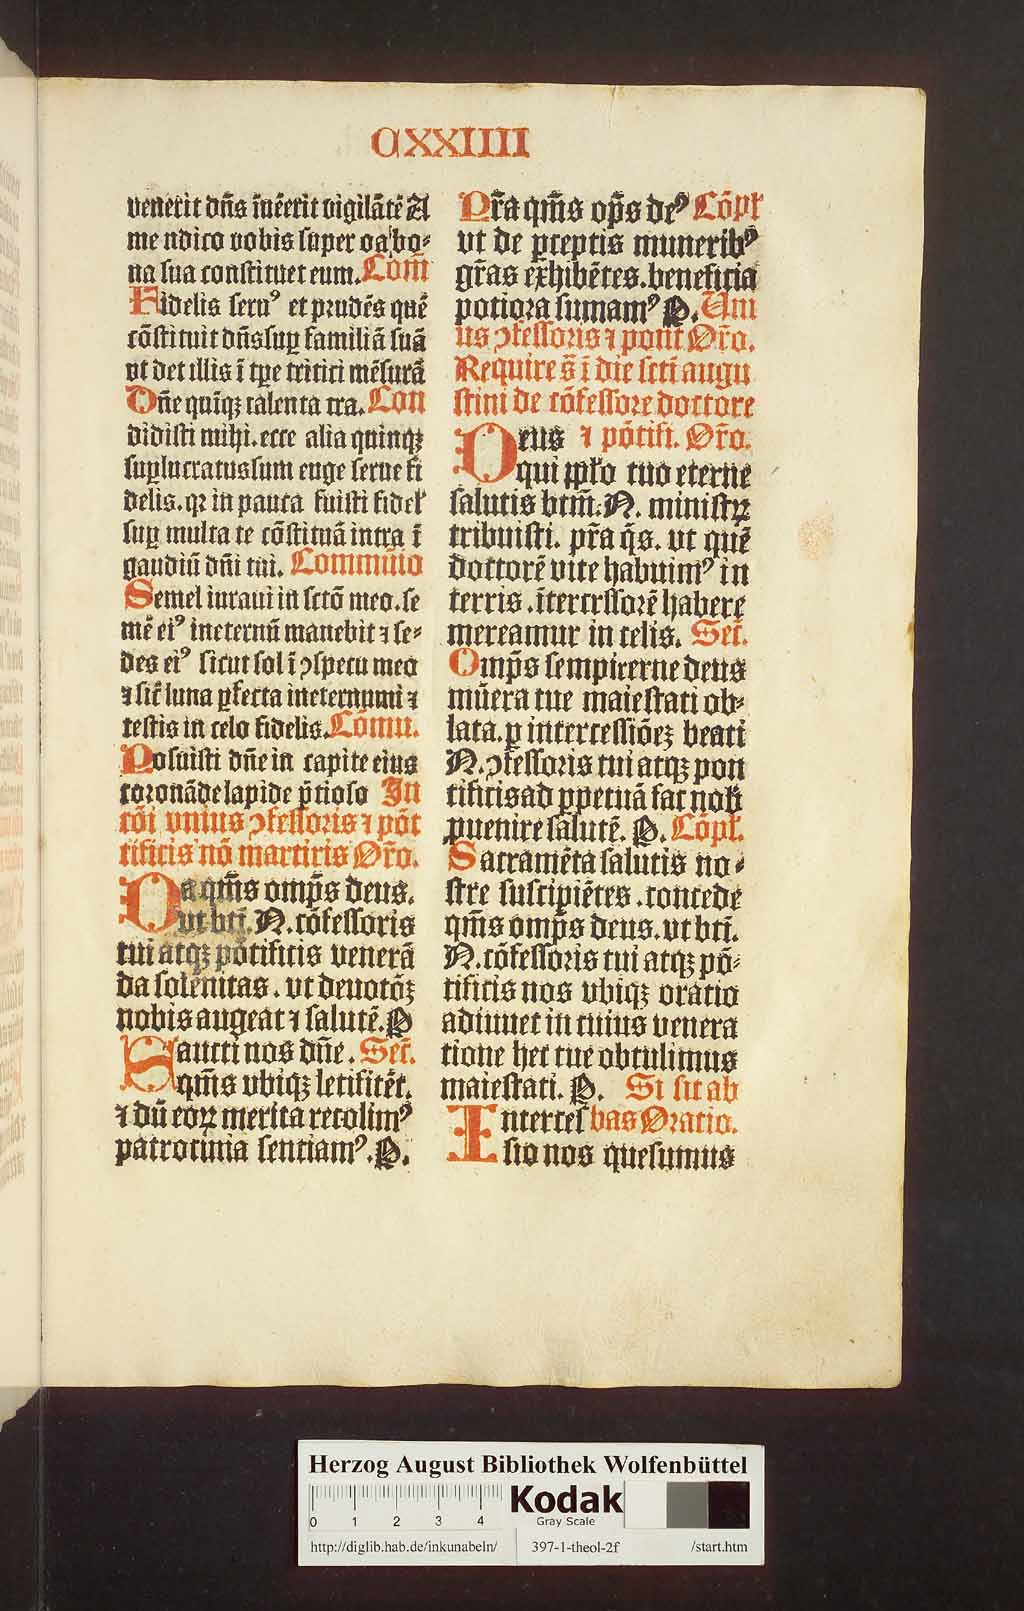 CXXIIII
venerit dn̄s īuēerit vigilātē A
me n dico vobis super oa bo⸗
na sua constituet eum. Com̄
Fidelis seruꝰ et prudēs quē
cōstituit dn̄s suꝑ familiā suā
vt det illis ī tꝑe tritici mēsurā
Dn̄e quīqꝫ talenta tra. Con
didisti mihi. ecce alia quinqꝫ
suꝑlucratus sum euge serue fi
delis. qꝛ in pauca fuisti fidel̓
suꝑ multa te cōstituā intra ī
gaudiū dn̄i tui. Commūio
Semel iuraui in sctō meo. se
mē eiꝰ ineternū manebit ⁊ se⸗
des eiꝰ sicut sol ī ꝯspectu meo
⁊ sic̄ luna ꝑfecta ineternum ⁊
testis in celo fidelis. Cōmu.
Posuisti dn̄e in capite eius
coronā de lapide p̄tioso In
cōi vnius ꝯfessoris ⁊ pōt
tificis nō martiris Or̄o.
Da qm̄s omp̄s deus.
vt bti. N. cōfessoris
tui atqꝫ pōtificis venerā
da solēnitas. vt deuotōꝫ
nobis augeat ⁊ salutē. P
Sancti nos dn̄e. Sec̄.
qm̄s vbiqꝫ letificēt.
⁊ dū eoꝝ merita recolimꝰ
patrocinia sentiamꝰ. P.
Pr̄a qm̄s op̄s deꝰ Cōpl̓
vt de ꝑceptis muneribꝰ
gr̄as exhibētes. beneficia
potiora sumamꝰ P. Vni
us ꝯfessoris ⁊ pont Or̄o.
Require s̄ ī die scti augu
stini de cōfessore doctore
Deus ⁊ pōtifi. Or̄o.
qui pplo tuo eterne
salutis btm̄. N. ministꝝ
tribuisti. pr̄a q̄s. vt quē
doctorē vite habuimꝰ in
terris. ītercessorē habere
mereamur in celis. Sec̄.
Omp̄s sempiterne deus
mūera tue maiestati ob⸗
lata. ꝑ intercessiōeꝫ beati
N. ꝯfessoris tui atqꝫ pon
tificis ad ꝑpetuā fac nob̓
ꝓuenire salutē. P. Cōpl̓.
Sacramēta salutis no⸗
stre suscipiētes. concede
qm̄s omp̄s deus. vt bti.
N. cōfessoris tui atqꝫ pō⸗
tificis nos vbiqꝫ oratio
adiuuet in cuius venera
tione hec tue obtulimus
maiestati. P. Si sit ab
Interces bas Oratio.
sio nos quesumus
Herzog August Bibliothek Wolfenbüttel
0 1 2 3 4
Kodak
Gray Scale
http://diglib.hab.de/inkunabeln/ 397-1-theol-2f /start.htm